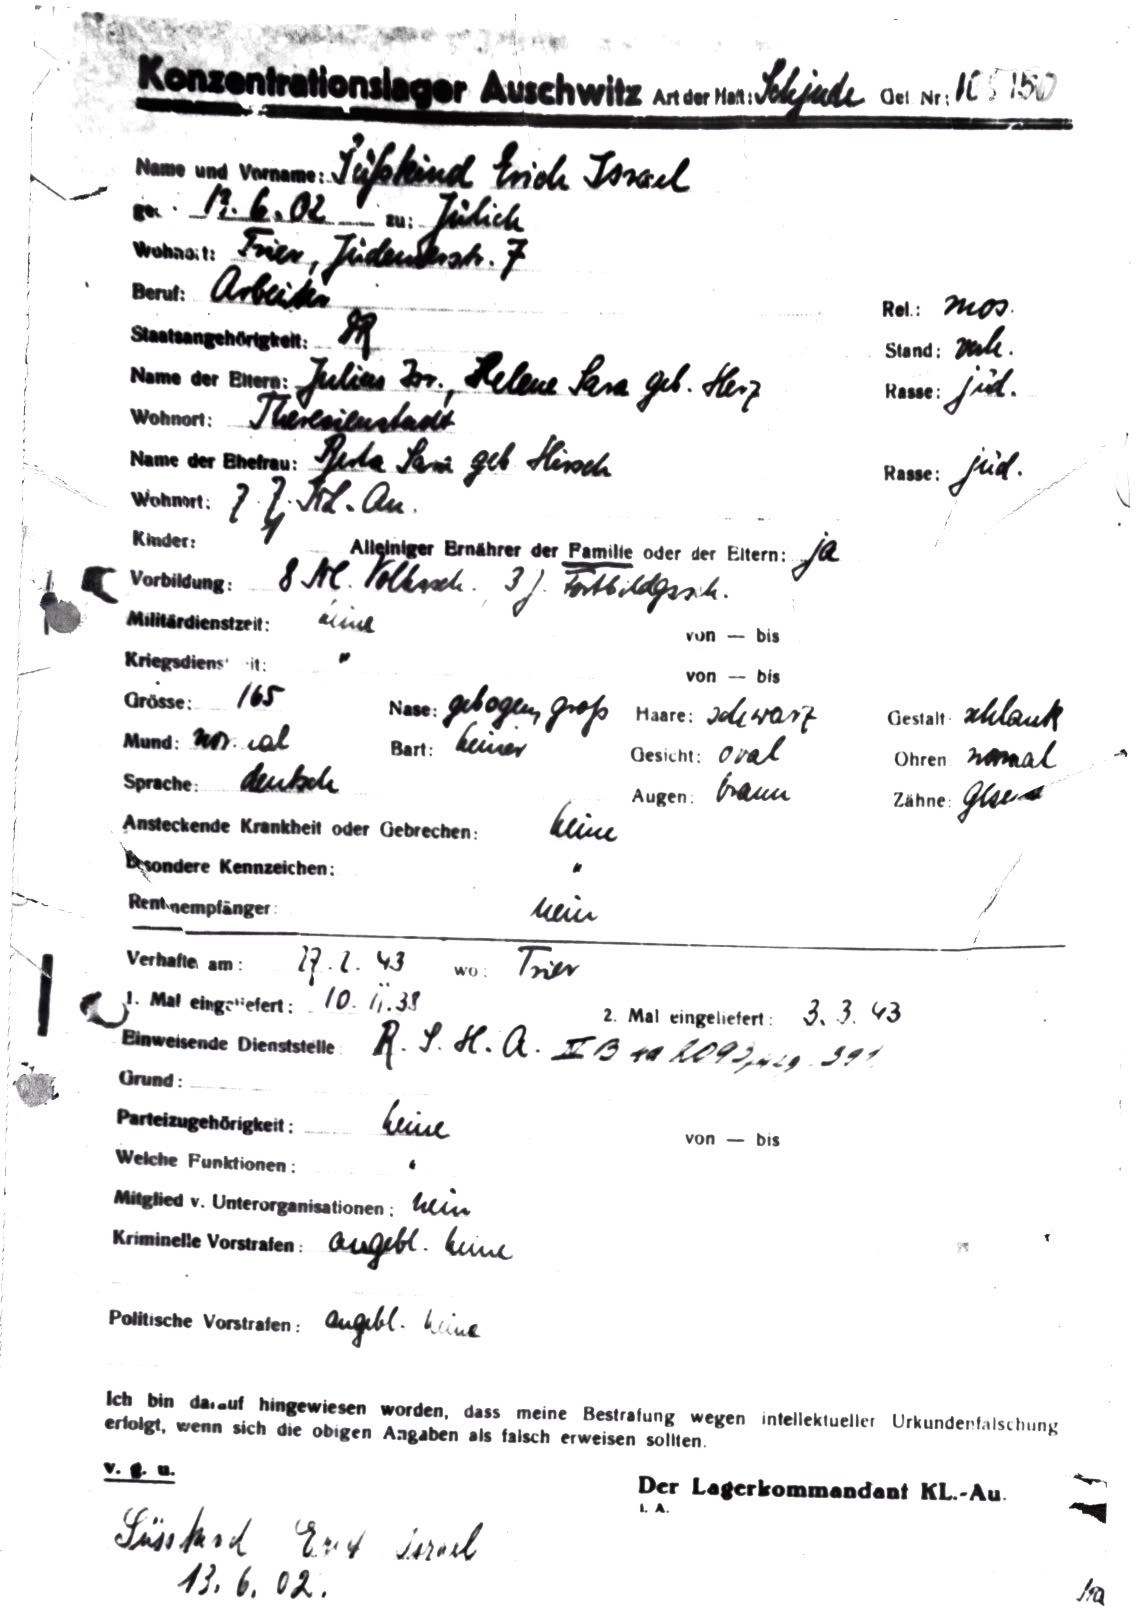 Konzentrationslager Auschwitz Art der Haft: Schjude Gef. Nr:
Name und Vorname: Süßkind Erich Israel
13.6.02 zu: Jülich
Wohnort: Trier, Jüdemerstr. 7
Beruf: Arbeiter Rel.: mos.
Staatsangehörigkeit: DR Stand: verh.
Name der Eltern: Julius Isr., Helene Sara geb. Herz Rasse: jüd.
Wohnort: Theresienstadt
Name der Ehefrau: Sara geb Hirsch Rasse: jüd.
Wohnort: z. Z. KL.-Au.
Kinder: Alleiniger Ernährer der Familie oder der Eltern: ja
Vorbildung: 8 Kl. Volkssch. 3 J. Fortbildgssch.
Militärdienstzeit: keine von — bis
Kriegsdienstzeit: " von — bis
Grösse: 165 Nase: gebogen, groß Haare: schwarz Gestalt: schlank
Mund: normal Bart: keiner Gesicht: oval Ohren normal
Sprache: deutsch Augen: braun Zähne:
Ansteckende Krankheit oder Gebrechen: keine
Besondere Kennzeichen: "
Rentenempfänger: nein
Verhaftet am: 27.2.43 wo: Trier
1. Mal eingeliefert: 10.11.38 2. Mal eingeliefert: 3.3.43
Einweisende Dienststelle: R.S.H.A. IV B 4a 2093/42g. 391
Grund:
Parteizugehörigkeit: keine von — bis
Welche Funktionen: "
Mitglied v. Unterorganisationen: nein
Kriminelle Vorstrafen: angebl. keine
Politische Vorstrafen: angebl. keine
Ich bin darauf hingewiesen worden, dass meine Bestrafung wegen intellektueller Urkundenfälschung
erfolgt, wenn sich die obigen Angaben als falsch erweisen sollten.
v. g. u. Der Lagerkommandant KL.-Au.
i. A.
Süsskind Erich Israel
13.6.02.